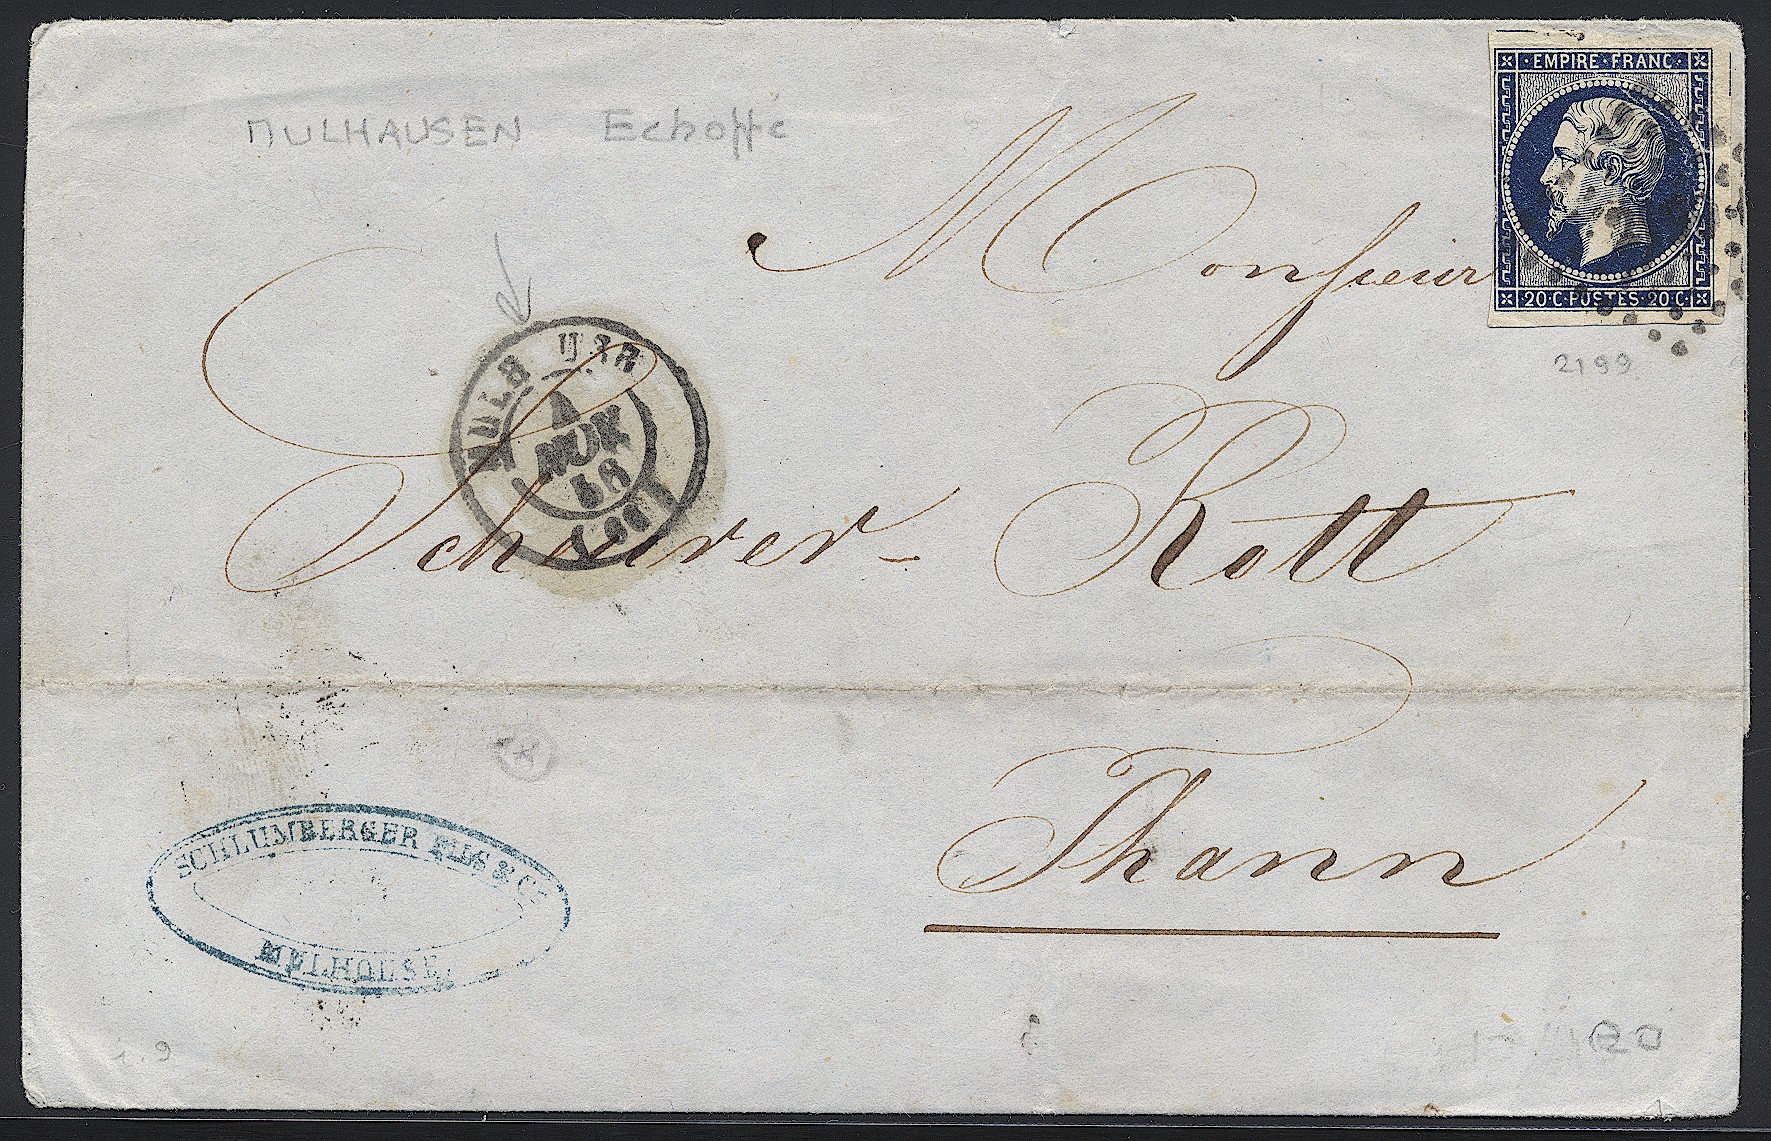 MULHAUSEN Echoppé
EMPIRE · FRANC
20 · C · POSTES · 20 C ·
2199
Monsieur
NOV
58
Scheurer-Rott
Thann
SCHLUMBERGER FILS & Cie
MULHOUSE